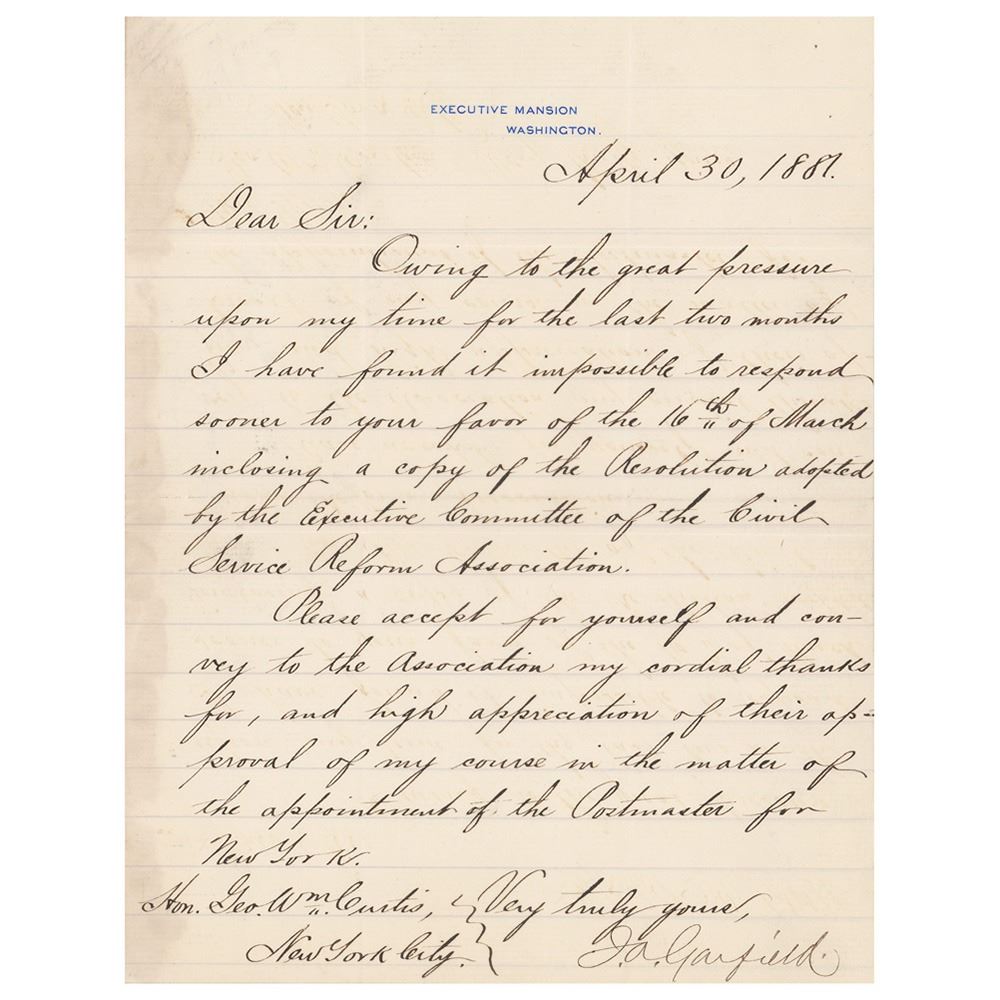 EXECUTIVE MANSION
WASHINGTON.
April 30, 1881.
Dear Sir:
Owing to the great pressure
upon my time for the last two months
I have found it impossible to respond
sooner to your favor of the 16th of March
inclosing a copy of the Resolution adopted
by the Executive Committee of the Civil
Service Reform Association.
Please accept for yourself and con-
vey to the Association my cordial thanks
for, and high appreciation of their ap-
proval of my course in the matter of
the appointment of the Postmaster for
New York.
Hon. Geo. Wm. Curtis, Very truly yours,
New York City. J.A. Garfield.